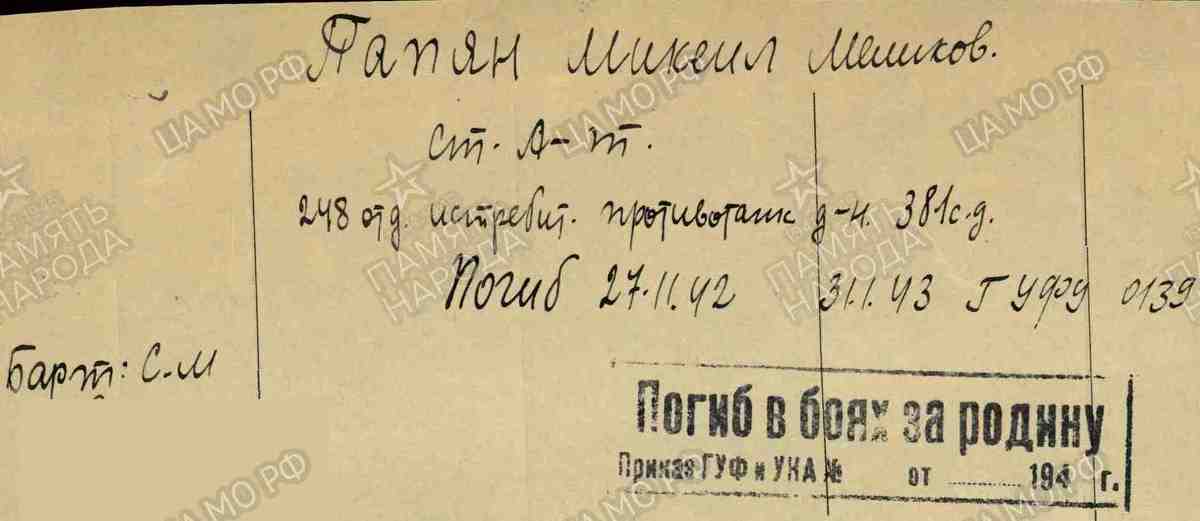 Папян Микеил Меликов.
ст. А-т.
248 отд. истребит. противотанк д-н. 381 с.д.
Погиб 27.11.42 31.1.43 ГУФУ 0139
Барт: С-м
Погиб в боях за родину
Приказ ГУФ и УКА № от ............ 194 г.
ЦАМО РФ
ПАМЯТЬ НАРОДА